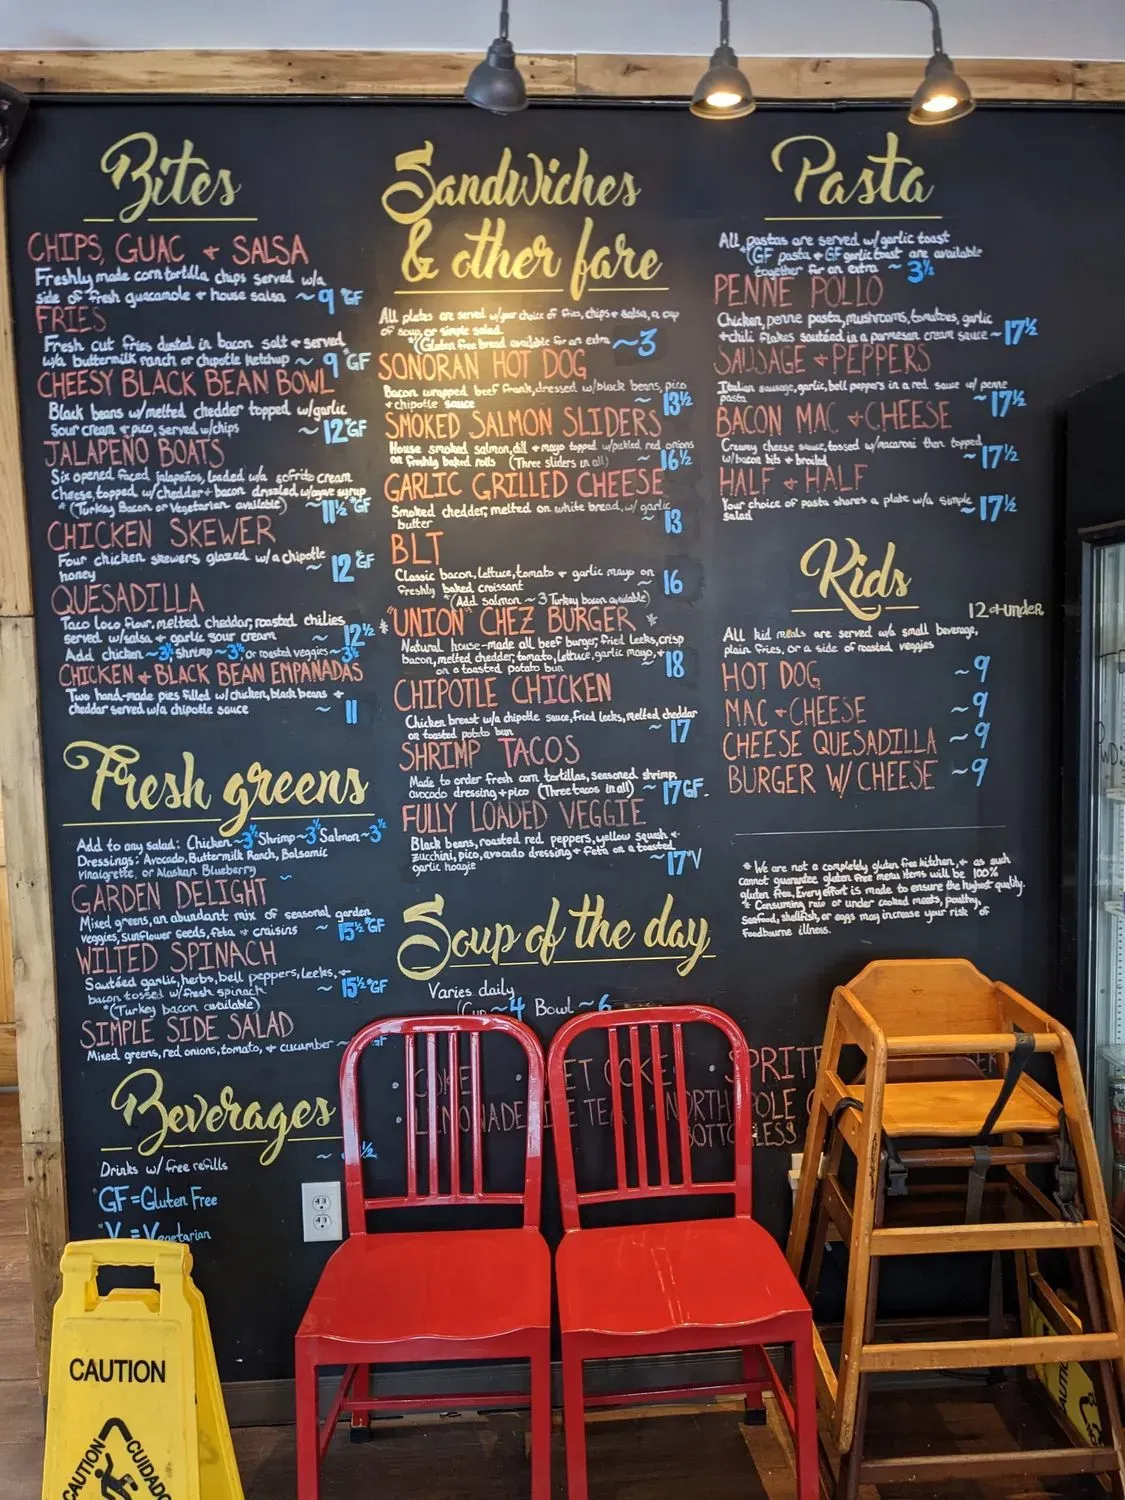 Bites
CHIPS, GUAC + SALSA
Freshly made corn tortilla chips served w/a
side of fresh guacamole + house salsa ~ 9 *GF
FRIES
Fresh cut fries dusted in bacon salt + served
w/a buttermilk ranch or chipotle ketchup ~ 9 *GF
CHEESY BLACK BEAN BOWL
Black beans w/melted chedder topped w/garlic
Sour cream + pico, served w/chips ~ 12 *GF
JALAPEÑO BOATS
Six opened faced jalapeños, loaded w/a sofrito cream
Cheese, topped w/chedder + bacon drizzled w/agave syrup
*(Turkey Bacon or Vegetarian available) ~ 11½ *GF
CHICKEN SKEWER
Four chicken skewers glazed w/a chipotle
honey ~ 12 *GF
QUESADILLA
Taco loco flour, melted cheddar, roasted chilies
served w/salsa + garlic sour cream ~ 12½
Add chicken ~3½, shrimp ~3½, or roasted veggies ~3½
CHICKEN + BLACK BEAN EMPANADAS
Two hand-made pies filled w/chicken, black beans +
cheddar served w/a chipotle sauce ~ 11
Fresh greens
Add to any salad: Chicken ~3½ Shrimp ~3½ Salmon ~3½
Dressings: Avocado, Buttermilk Ranch, Balsamic
Vinaigrette, or Alaskan Blueberry ~
GARDEN DELIGHT
Mixed greens, an abundant mix of seasonal garden
veggies, sunflower seeds, feta + craisins ~ 15½ *GF
WILTED SPINACH
Sautéed garlic, herbs, bell peppers, leeks, +
bacon tossed w/fresh spinach ~ 15½ *GF
*(Turkey bacon available)
SIMPLE SIDE SALAD
Mixed greens, red onions, tomato, + cucumber ~ GF
Beverages
Drinks w/ free refills ~ ½
GF = Gluten Free
*V = Vegetarian
Sandwiches
& other fare
All plates are served w/your choice of fries, chips + salsa, a cup
of soup, or simple salad.
*(Gluten free bread available for an extra ~3
SONORAN HOT DOG
Bacon wrapped beef frank, dressed w/black beans, pico
+ chipotle sauce ~ 13½
SMOKED SALMON SLIDERS
House smoked salmon, dill + mayo topped w/pickled red onions
on freshly baked rolls (Three sliders in all) ~ 16½
GARLIC GRILLED CHEESE
Smoked chedder, melted on white bread, w/ garlic
butter ~ 13
BLT
Classic bacon, lettuce, tomato + garlic mayo on
freshly baked croissant ~ 16
*(Add salmon ~ 3 Turkey bacon available)
*"UNION" CHEZ BURGER *
Natural house-made all beef burger, fried leeks, crisp
bacon, melted chedder, tomato, lettuce, garlic mayo, +
on a toasted potato bun ~ 18
CHIPOTLE CHICKEN
Chicken breast w/a chipotle sauce, fried leeks, melted chedder
on toasted potato bun ~ 17
SHRIMP TACOS
Made to order fresh corn tortillas, seasoned shrimp,
avocado dressing + pico (Three tacos in all) ~ 17 GF.
FULLY LOADED VEGGIE
Black beans, roasted red peppers, yellow squash +
zucchini, pico, avocado dressing + feta on a toasted
garlic hoagie ~17 *V
Soup of the day
Varies daily
Cup ~ 4 Bowl ~ 6
COKE • ET COKE • SPRITE
• LEMONADE TEA NORTH POLE
BOTTOMLESS
Pasta
All pastas are served w/garlic toast
*(GF pasta + GF garlic toast are available
together for an extra ~ 3½
PENNE POLLO
Chicken, penne pasta, mushrooms, tomatoes, garlic
+ chili flakes sautéed in a parmesan cream sauce ~ 17½
SAUSAGE + PEPPERS
Italian sausage, garlic, bell peppers in a red sauce w/ penne
pasta ~ 17½
BACON MAC + CHEESE
Creamy cheese sauce, tossed w/macaroni then topped
w/bacon bits + broiled ~ 17½
HALF + HALF
Your choice of pasta shares a plate w/a simple
salad ~ 17½
Kids
12 + under
All kid meals are served w/a small beverage,
plain fries, or a side of roasted veggies
HOT DOG ~9
MAC + CHEESE ~9
CHEESE QUESADILLA ~9
BURGER W/ CHEESE ~9
* We are not a completely gluten free kitchen, + as such
cannot guarantee gluten free menu items will be 100%
gluten free. Every effort is made to ensure the highest quality.
* Consuming raw or under cooked meats, poultry,
seafood, shellfish, or eggs may increase your risk of
foodbourne illness.
CAUTION
CAUTION
CUIDADO